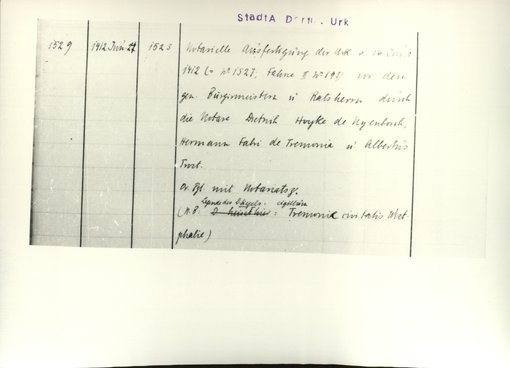 StadtA Dortm. Urk
1529 1412 Juni 27 1523 Notarielle Ausfertigung der Urk. v.
1412 (= Nº 1527, Fahne II Nº 191) vor dem
gen. Bürgermeistern u Ratsherrn durch
die Notare Dietrich Hoyke de Nyenborch,
Hermann Fabri de Tremonia u Albertus
Trost.
Or Pgt mit Notariatsz.
(N.B. : Tremonie civitatis West
phalie)